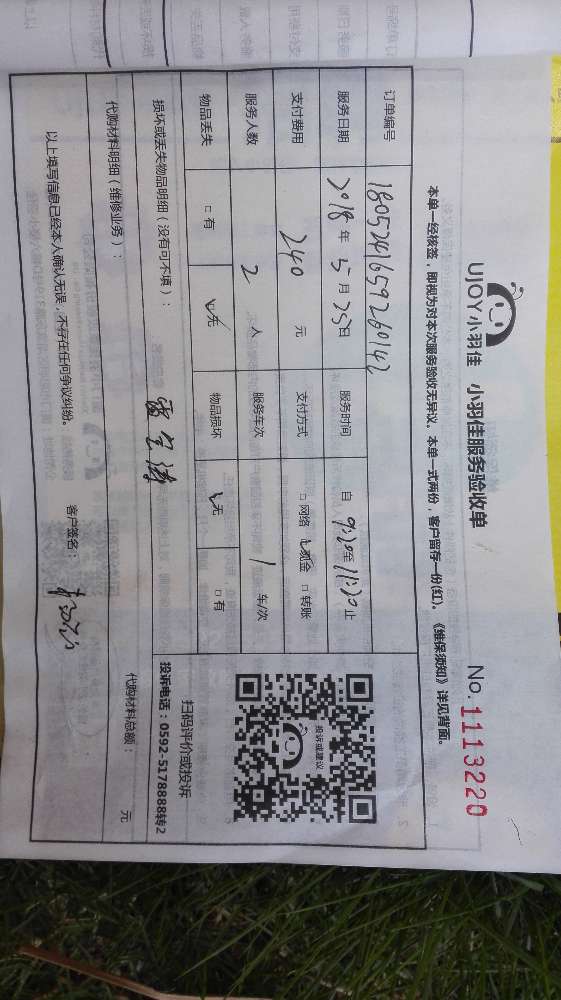 UJOY小羽佳 小羽佳服务验收单
No. 1113220
本单一经核签，即视为对本次服务验收无异议。本单一式两份，客户留存一份(红)。《维保须知》详见背面。
订单编号 1805241659260142
服务日期 2018年5月25日 服务时间 自9:20至11:20止
支付费用 240元 支付方式 □网络 ☑现金 □转账
服务人数 2人 服务车次 1车/次
物品丢失 □有 ☑无 物品损坏 ☑无 □有
投诉或建议
扫码评价或投诉
投诉电话：0592-5178888转2
损坏或丢失物品明细（没有可不填）：
代购材料明细（维修业务）： 代购材料总额： 元
以上填写信息已经本人确认无误，不存在任何争议纠纷。 客户签名：